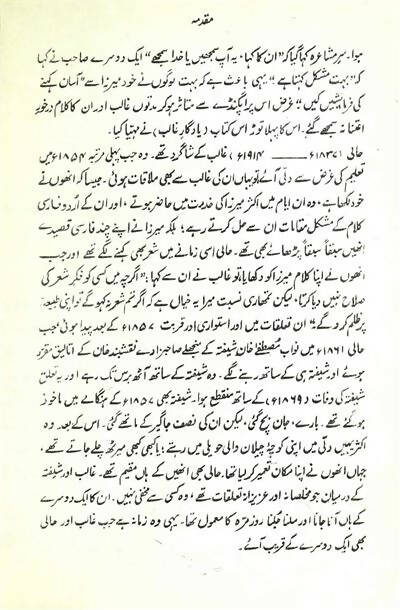 مقدمہ
ہوا۔ سرِ مشاعرہ کہا گیا کہ "ان کا کہا، یہ آپ سمجھیں یا خدا سمجھے" ایک دوسرے صاحب نے کہا
کہ "بہت مشکل کہتا ہے" یہی باعث ہے کہ بہت لوگوں نے خود میرزا سے "آسان کہنے
کی فرمایشیں کیں" غرض اس پراپگنڈے سے متاثر ہو کر مدتوں غالب اور ان کا کلام درخورِ
اعتنا نہ سمجھے گئے۔ اس کا پہلا توڑ اس کتاب (یادگارِ غالب) نے مہیا کیا۔
حالی (۱۸۳۷ء ــــ ۱۹۱۴ء) غالب کے شاگرد تھے۔ وہ جب پہلی مرتبہ ۱۸۵۴ء میں
تعلیم کی غرض سے دلّی آئے تو یہاں ان کی غالب سے بھی ملاقات ہوئی۔ جیسا کہ انھوں نے
خود لکھا ہے، وہ ان ایام میں اکثر میرزا کی خدمت میں حاضر ہوتے، اور ان کے اردو فارسی
کلام کے مشکل مقامات ان سے حل کرتے رہے؛ بلکہ میرزا نے اپنے چند فارسی قصیدے
انھیں سبقاً سبقاً پڑھائے بھی تھے۔ حالی اسی زمانے میں شعر بھی کہنے لگے تھے اور جب
انھوں نے اپنا کلام میرزا کو دکھایا تو غالب نے ان سے کہا: "اگرچہ میں کسی کو فکرِ شعر کی
صلاح نہیں دیا کرتا، لیکن تمھاری نسبت میرا یہ خیال ہے کہ اگر تم شعر نہ کہو گے تو اپنی طبیعت
پر ظلم کرو گے" ان تعلقات میں اور استواری اور قربت ۱۸۵۷ء کے بعد پیدا ہوئی جب
حالی ۱۸۶۱ء میں نواب مصطفےٰ خان شیفتہ کے منجھلے صاحبزادے نقشبند خان کے اتالیق مقرر
ہوئے اور شیفتہ ہی کے ساتھ رہنے لگے۔ وہ شیفتہ کے ساتھ آٹھ برس تک رہے اور یہ تعلق
شیفتہ کی وفات (۱۸۶۹ء) کے ساتھ منقطع ہوا۔ شیفتہ بھی ۱۸۵۷ء کے ہنگامے میں ماخوذ
ہو گئے تھے۔ بارے، جان بچ گئی، لیکن ان کی نصف جاگیر کے ماتھے گئی۔ اس کے بعد وہ
اکثر یہیں دلّی میں اپنی کوچۂ چیلان والی حویلی میں رہتے؛ یا کبھی کبھی میرٹھ چلے جاتے تھے،
جہاں انھوں نے اپنا مکان تعمیر کر لیا تھا۔ حالی بھی انھیں کے ہاں مقیم تھے۔ غالب اور شیفتہ
کے درمیان جو مخلصانہ اور عزیزانہ تعلقات تھے، وہ کسی سے مخفی نہیں۔ ان کا ایک دوسرے
کے ہاں آنا جانا اور ملنا جلنا روز مرّہ کا معمول تھا۔ یہی وہ زمانہ ہے جب غالب اور حالی
بھی ایک دوسرے کے قریب آئے۔